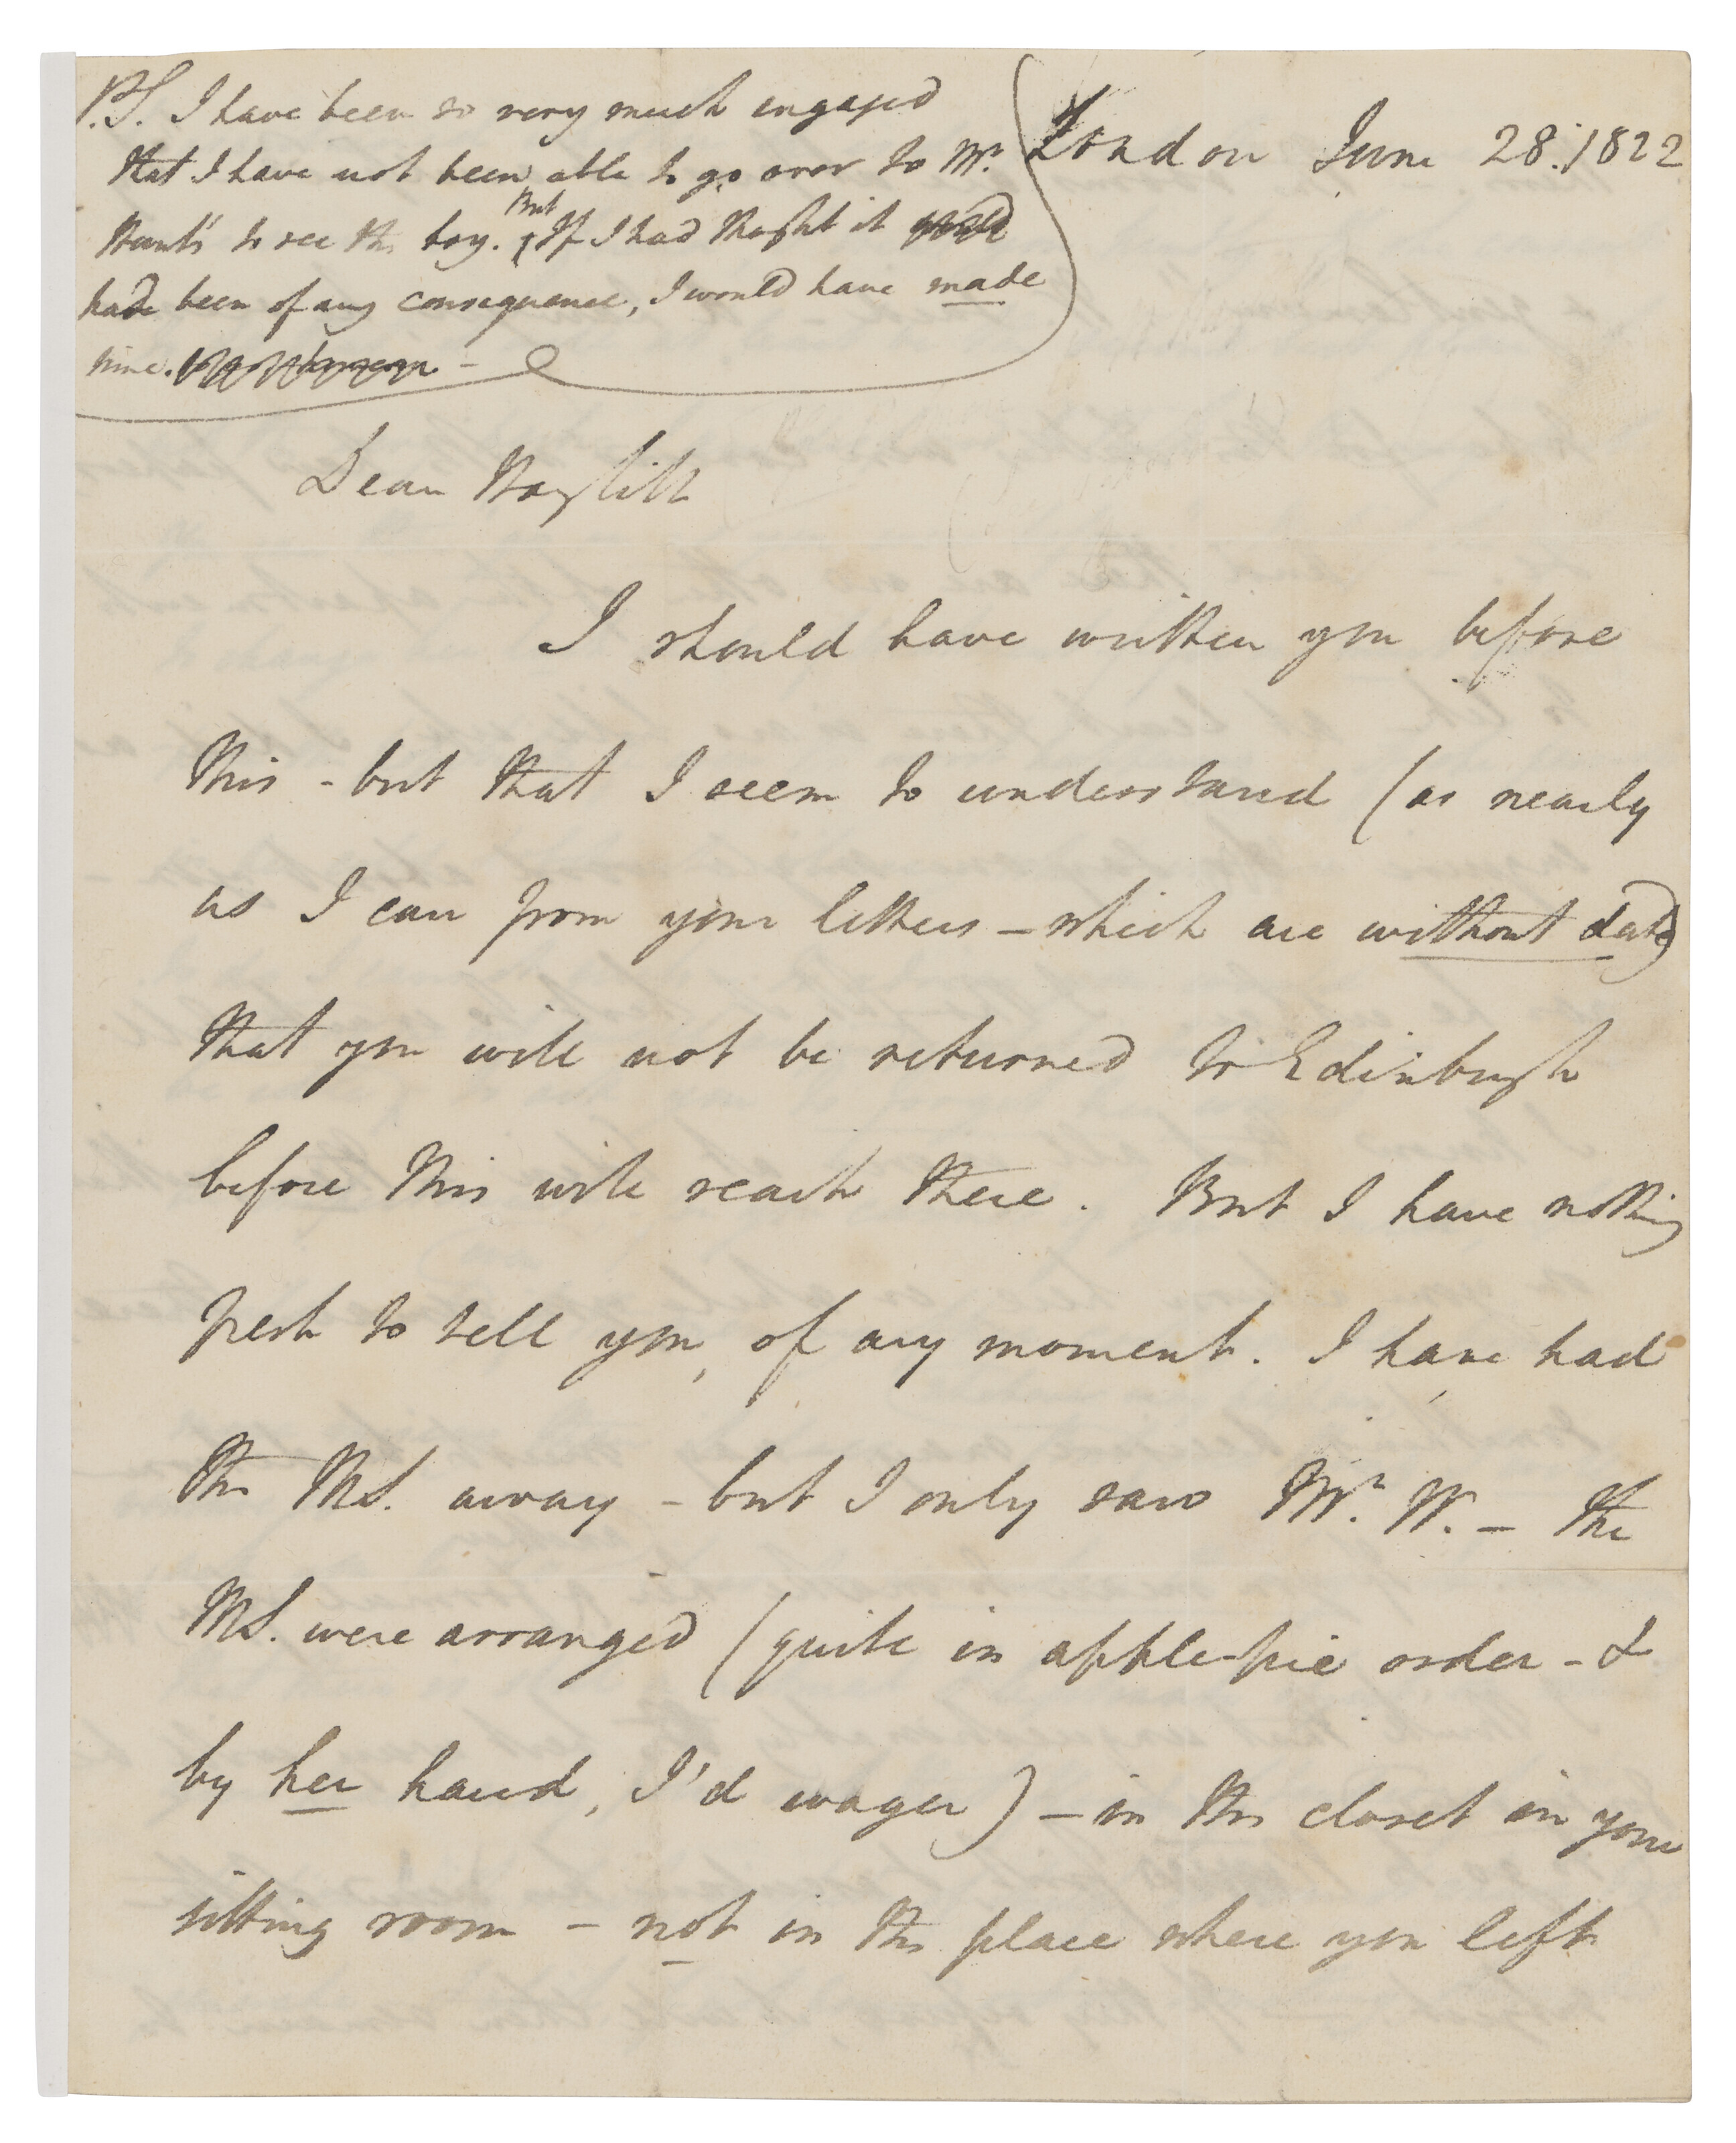 P.S. I have been so very much engaged
that I have not been able to go over to Mr.
Hunt's to see the boy. But If I had thought it
had been of any consequence, I would have made
time.
London June 28. 1822
Dear Hazlitt
I should have written you before
this - but that I seem to understand (as nearly
as I can from your letters - which are without date)
that you will not be returned to Edinburgh
before this will reach there. But I have nothing
fresh to tell you, of any moment. I have had
the MS. away - but I only saw Mr. W. - The
MS. were arranged (quite in apple-pie order - &
by her hand, I'd wager) - in the closet in your
sitting room - not in the place where you left